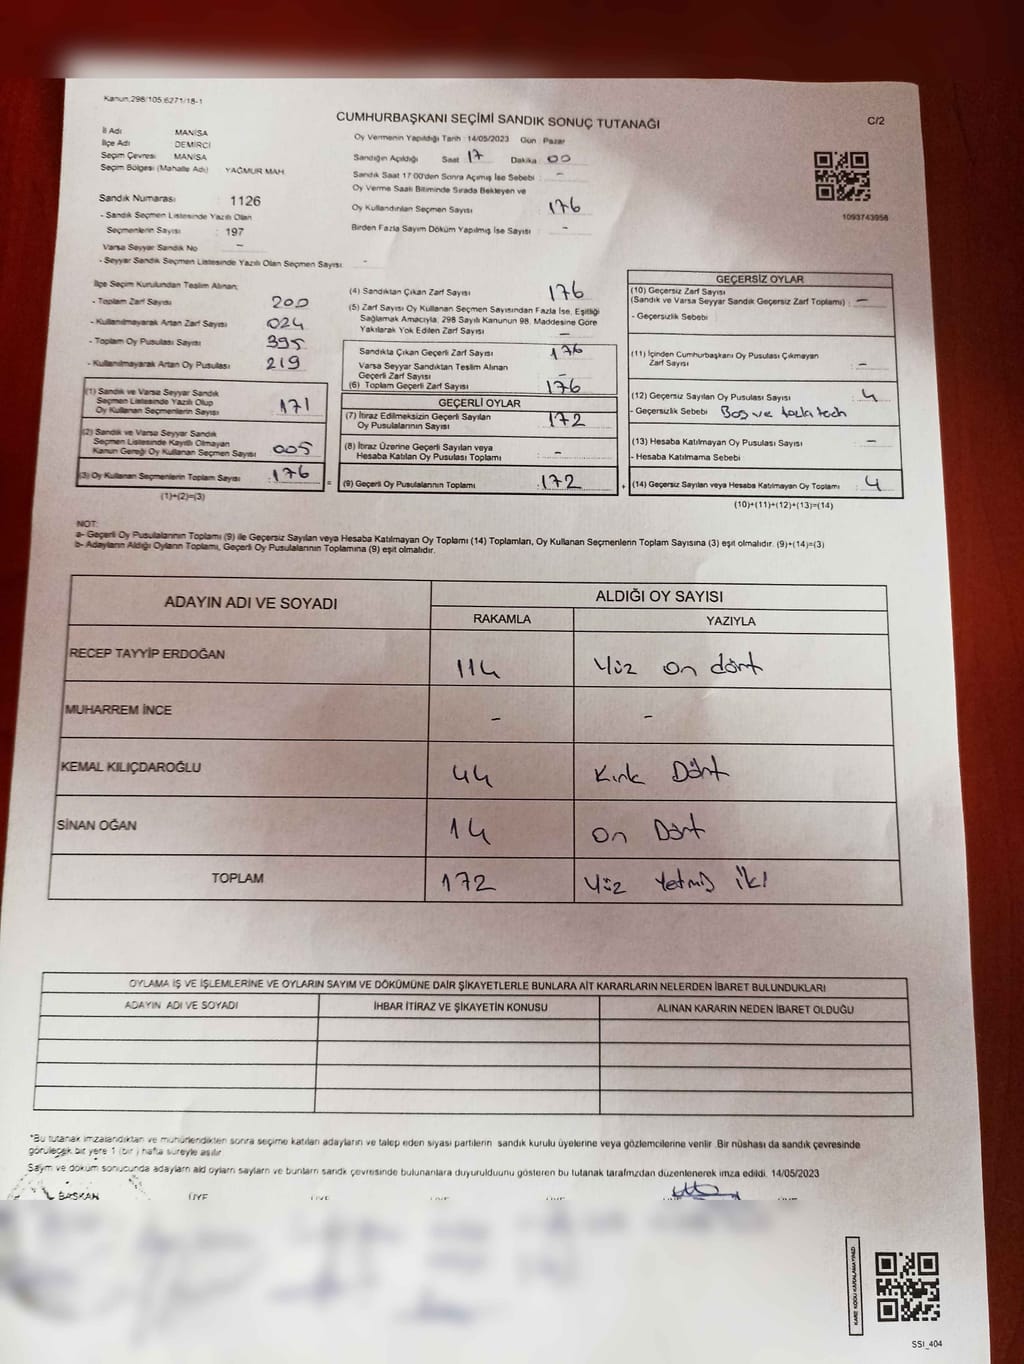 Kanun:298/105;6271/18-1
CUMHURBAŞKANI SEÇİMİ SANDIK SONUÇ TUTANAĞI
C/2
İl Adı MANİSA
İlçe Adı DEMİRCİ
Seçim Çevresi MANİSA
Seçim Bölgesi (Mahalle Adı) YAĞMUR MAH.
Oy Vermenin Yapıldığı Tarih : 14/05/2023 Gün : Pazar
Sandığın Açıldığı Saat 17 Dakika 00
Sandık Saat 17:00'den Sonra Açımış İse Sebebi : -
Oy Verme Saati Bitiminde Sırada Bekleyen ve
Oy Kullandırılan Seçmen Sayısı 176
Birden Fazla Sayım Döküm Yapılmış İse Sayısı : -
1093743956
Sandık Numarası : 1126
- Sandık Seçmen Listesinde Yazılı Olan
Seçmenlerin Sayısı : 197
Varsa Seyyar Sandık No -
- Seyyar Sandık Seçmen Listesinde Yazılı Olan Seçmen Sayısı: -
İlçe Seçim Kurulundan Teslim Alınan;
- Toplam Zarf Sayısı 200
- Kullanılmayarak Artan Zarf Sayısı 024
- Toplam Oy Pusulası Sayısı 395
- Kullanılmayarak Artan Oy Pusulası 219
(1) Sandık ve Varsa Seyyar Sandık
Seçmen Listesinde Yazılı Olup
Oy Kullanan Seçmenlerin Sayısı : 171
(2) Sandık ve Varsa Seyyar Sandık
Seçmen Listesinde Kayıtlı Olmayan
Kanun Gereği Oy Kullanan Seçmen Sayısı 005
(3) Oy Kullanan Seçmenlerin Toplam Sayısı : 176
(1)+(2)=(3)
(4) Sandıktan Çıkan Zarf Sayısı 176
(5) Zarf Sayısı Oy Kullanan Seçmen Sayısından Fazla İse, Eşitliği
Sağlamak Amacıyla, 298 Sayılı Kanunun 98. Maddesine Göre
Yakılarak Yok Edilen Zarf Sayısı -
Sandıkta Çıkan Geçerli Zarf Sayısı 176
Varsa Seyyar Sandıktan Teslim Alınan
Geçerli Zarf Sayısı -
(6) Toplam Geçerli Zarf Sayısı 176
GEÇERLİ OYLAR
(7) İtiraz Edilmeksizin Geçerli Sayılan
Oy Pusulalarının Sayısı 172
(8) İtiraz Üzerine Geçerli Sayılan veya
Hesaba Katılan Oy Pusulası Toplamı : -
= (9) Geçerli Oy Pusulalarının Toplamı : 172 +
GEÇERSİZ OYLAR
(10) Geçersiz Zarf Sayısı
(Sandık ve Varsa Seyyar Sandık Geçersiz Zarf Toplamı) : -
- Geçersizlik Sebebi
(11) İçinden Cumhurbaşkanı Oy Pusulası Çıkmayan
Zarf Sayısı : -
(12) Geçersiz Sayılan Oy Pusulası Sayısı 4
- Geçersizlik Sebebi Boş ve
(13) Hesaba Katılmayan Oy Pusulası Sayısı -
- Hesaba Katılmama Sebebi
(14) Geçersiz Sayılan veya Hesaba Katılmayan Oy Toplamı : 4
(10)+(11)+(12)+(13)=(14)
NOT:
a- Geçerli Oy Pusulalarının Toplamı (9) ile Geçersiz Sayılan veya Hesaba Katılmayan Oy Toplamı (14) Toplamları, Oy Kullanan Seçmenlerin Toplam Sayısına (3) eşit olmalıdır. (9)+(14)=(3)
b- Adayların Aldığı Oyların Toplamı, Geçerli Oy Pusulalarının Toplamına (9) eşit olmalıdır.
ADAYIN ADI VE SOYADI
ALDIĞI OY SAYISI
RAKAMLA YAZIYLA
RECEP TAYYİP ERDOĞAN 114 Yüz on dört
MUHARREM İNCE - -
KEMAL KILIÇDAROĞLU 44 Kırk Dört
SİNAN OĞAN 14 On Dört
TOPLAM 172 Yüz Yetmiş İki
OYLAMA İŞ VE İŞLEMLERİNE VE OYLARIN SAYIM VE DÖKÜMÜNE DAİR ŞİKAYETLERLE BUNLARA AİT KARARLARIN NELERDEN İBARET BULUNDUKLARI
ADAYIN ADI VE SOYADI İHBAR İTİRAZ VE ŞİKAYETİN KONUSU ALINAN KARARIN NEDEN İBARET OLDUĞU
*Bu tutanak imzalandıktan ve mühürlendikten sonra seçime katılan adayların ve talep eden siyasi partilerin sandık kurulu üyelerine veya gözlemcilerine verilir. Bir nüshası da sandık çevresinde
görülecek bir yere 1 (bir ) hafta süreyle asılır
Sayım ve döküm sonucunda adayların aldı oyların sayıların ve bunların sandık çevresinde bulunanlara duyurulduunu gösteren bu tutanak tarafımızdan düzenlenerek imza edildi. 14/05/2023
BAŞKAN ÜYE
KARE KODU KARALAMAYINIZ!
SSI_404